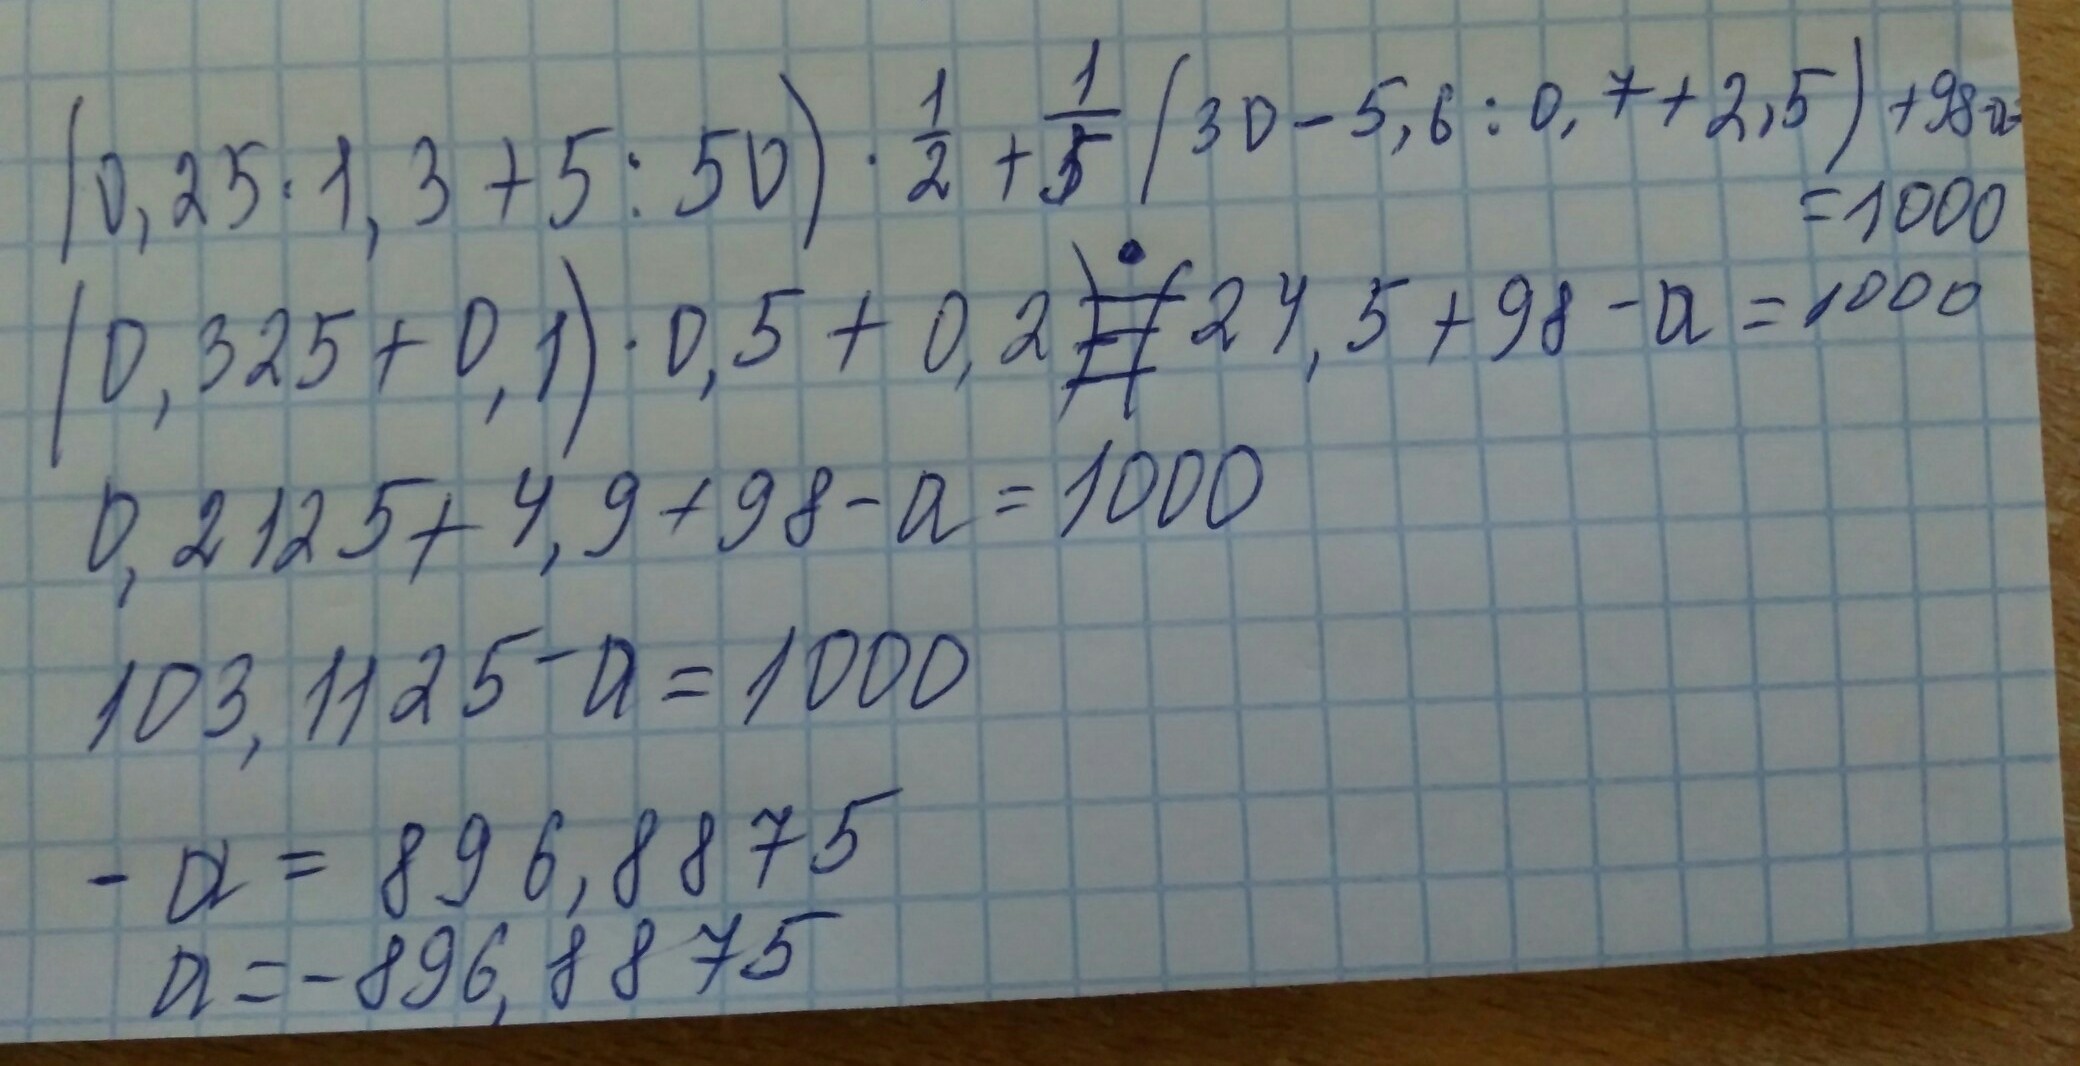 (0,25·1,3+5:50)·1/2+1/5(30-5,6:0,7+2,5)+98-a=
=1000
(0,325+0,1)·0,5+0,2·24,5+98-a=1000
0,2125+4,9+98-a=1000
103,1125-a=1000
-a=896,8875
a=-896,8875